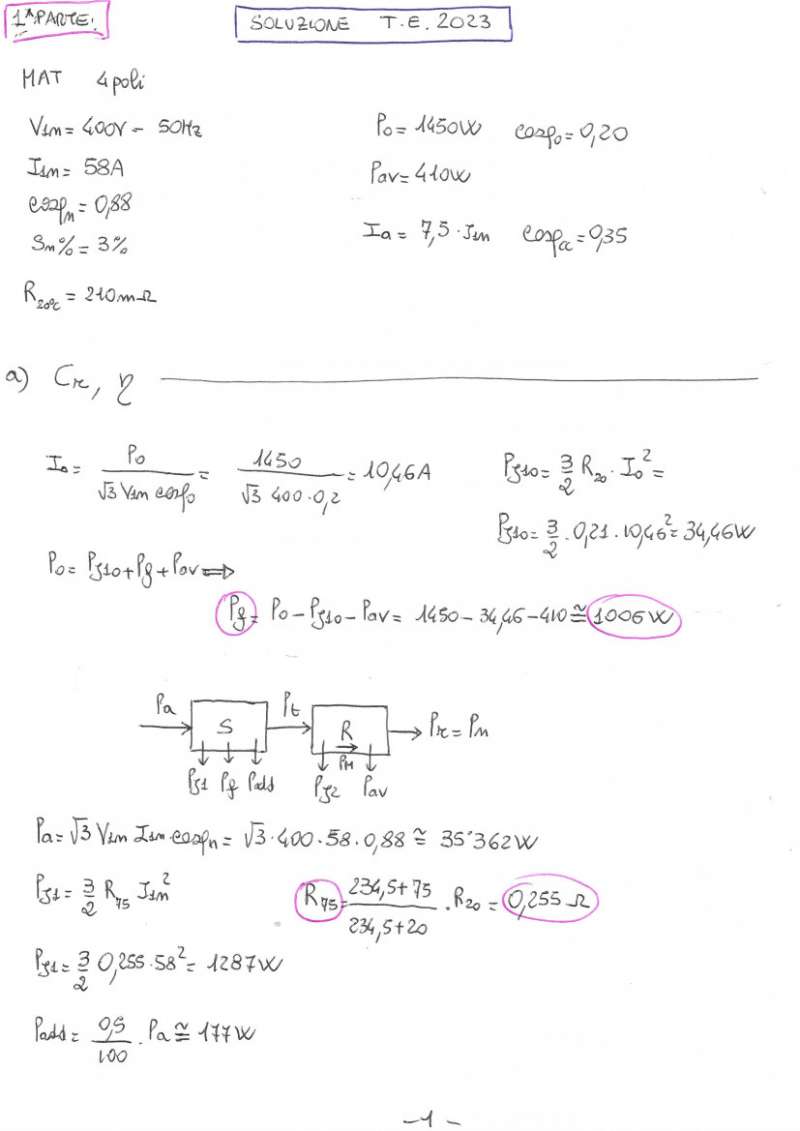 1ᴬPARTE:
SOLUZIONE T.E. 2023
MAT 4 poli
V1n = 400V - 50Hz
P0 = 1450W cosφ0 = 0,20
I1n = 58A
Pav = 410W
cosφn = 0,88
Ia = 7,5 · I1n cosφa = 0,35
Sn% = 3%
R20°C = 210mΩ
a) Cr, η
I0 = P0 / (√3 V1n cosφ0) = 1450 / (√3 400 · 0,2) = 10,46A
Pj10 = 3/2 R20 · I0² =
Pj10 = 3/2 · 0,21 · 10,46² = 34,46W
P0 = Pj10 + Pf + Pav ⟹
Pf = P0 - Pj10 - Pav = 1450 - 34,46 - 410 ≅ 1006W
Pa S Pt R Pr = Pn
PM
Pj1 Pf Padd Pj2 Pav
Pa = √3 V1n I1n cosφn = √3 · 400 · 58 · 0,88 ≅ 35'362W
Pj1 = 3/2 R75 I1n²
R75 = (234,5 + 75) / (234,5 + 20) · R20 = 0,255 Ω
Pj1 = 3/2 0,255 · 58² = 1287W
Padd = 0,5/100 · Pa ≅ 177W
-1-